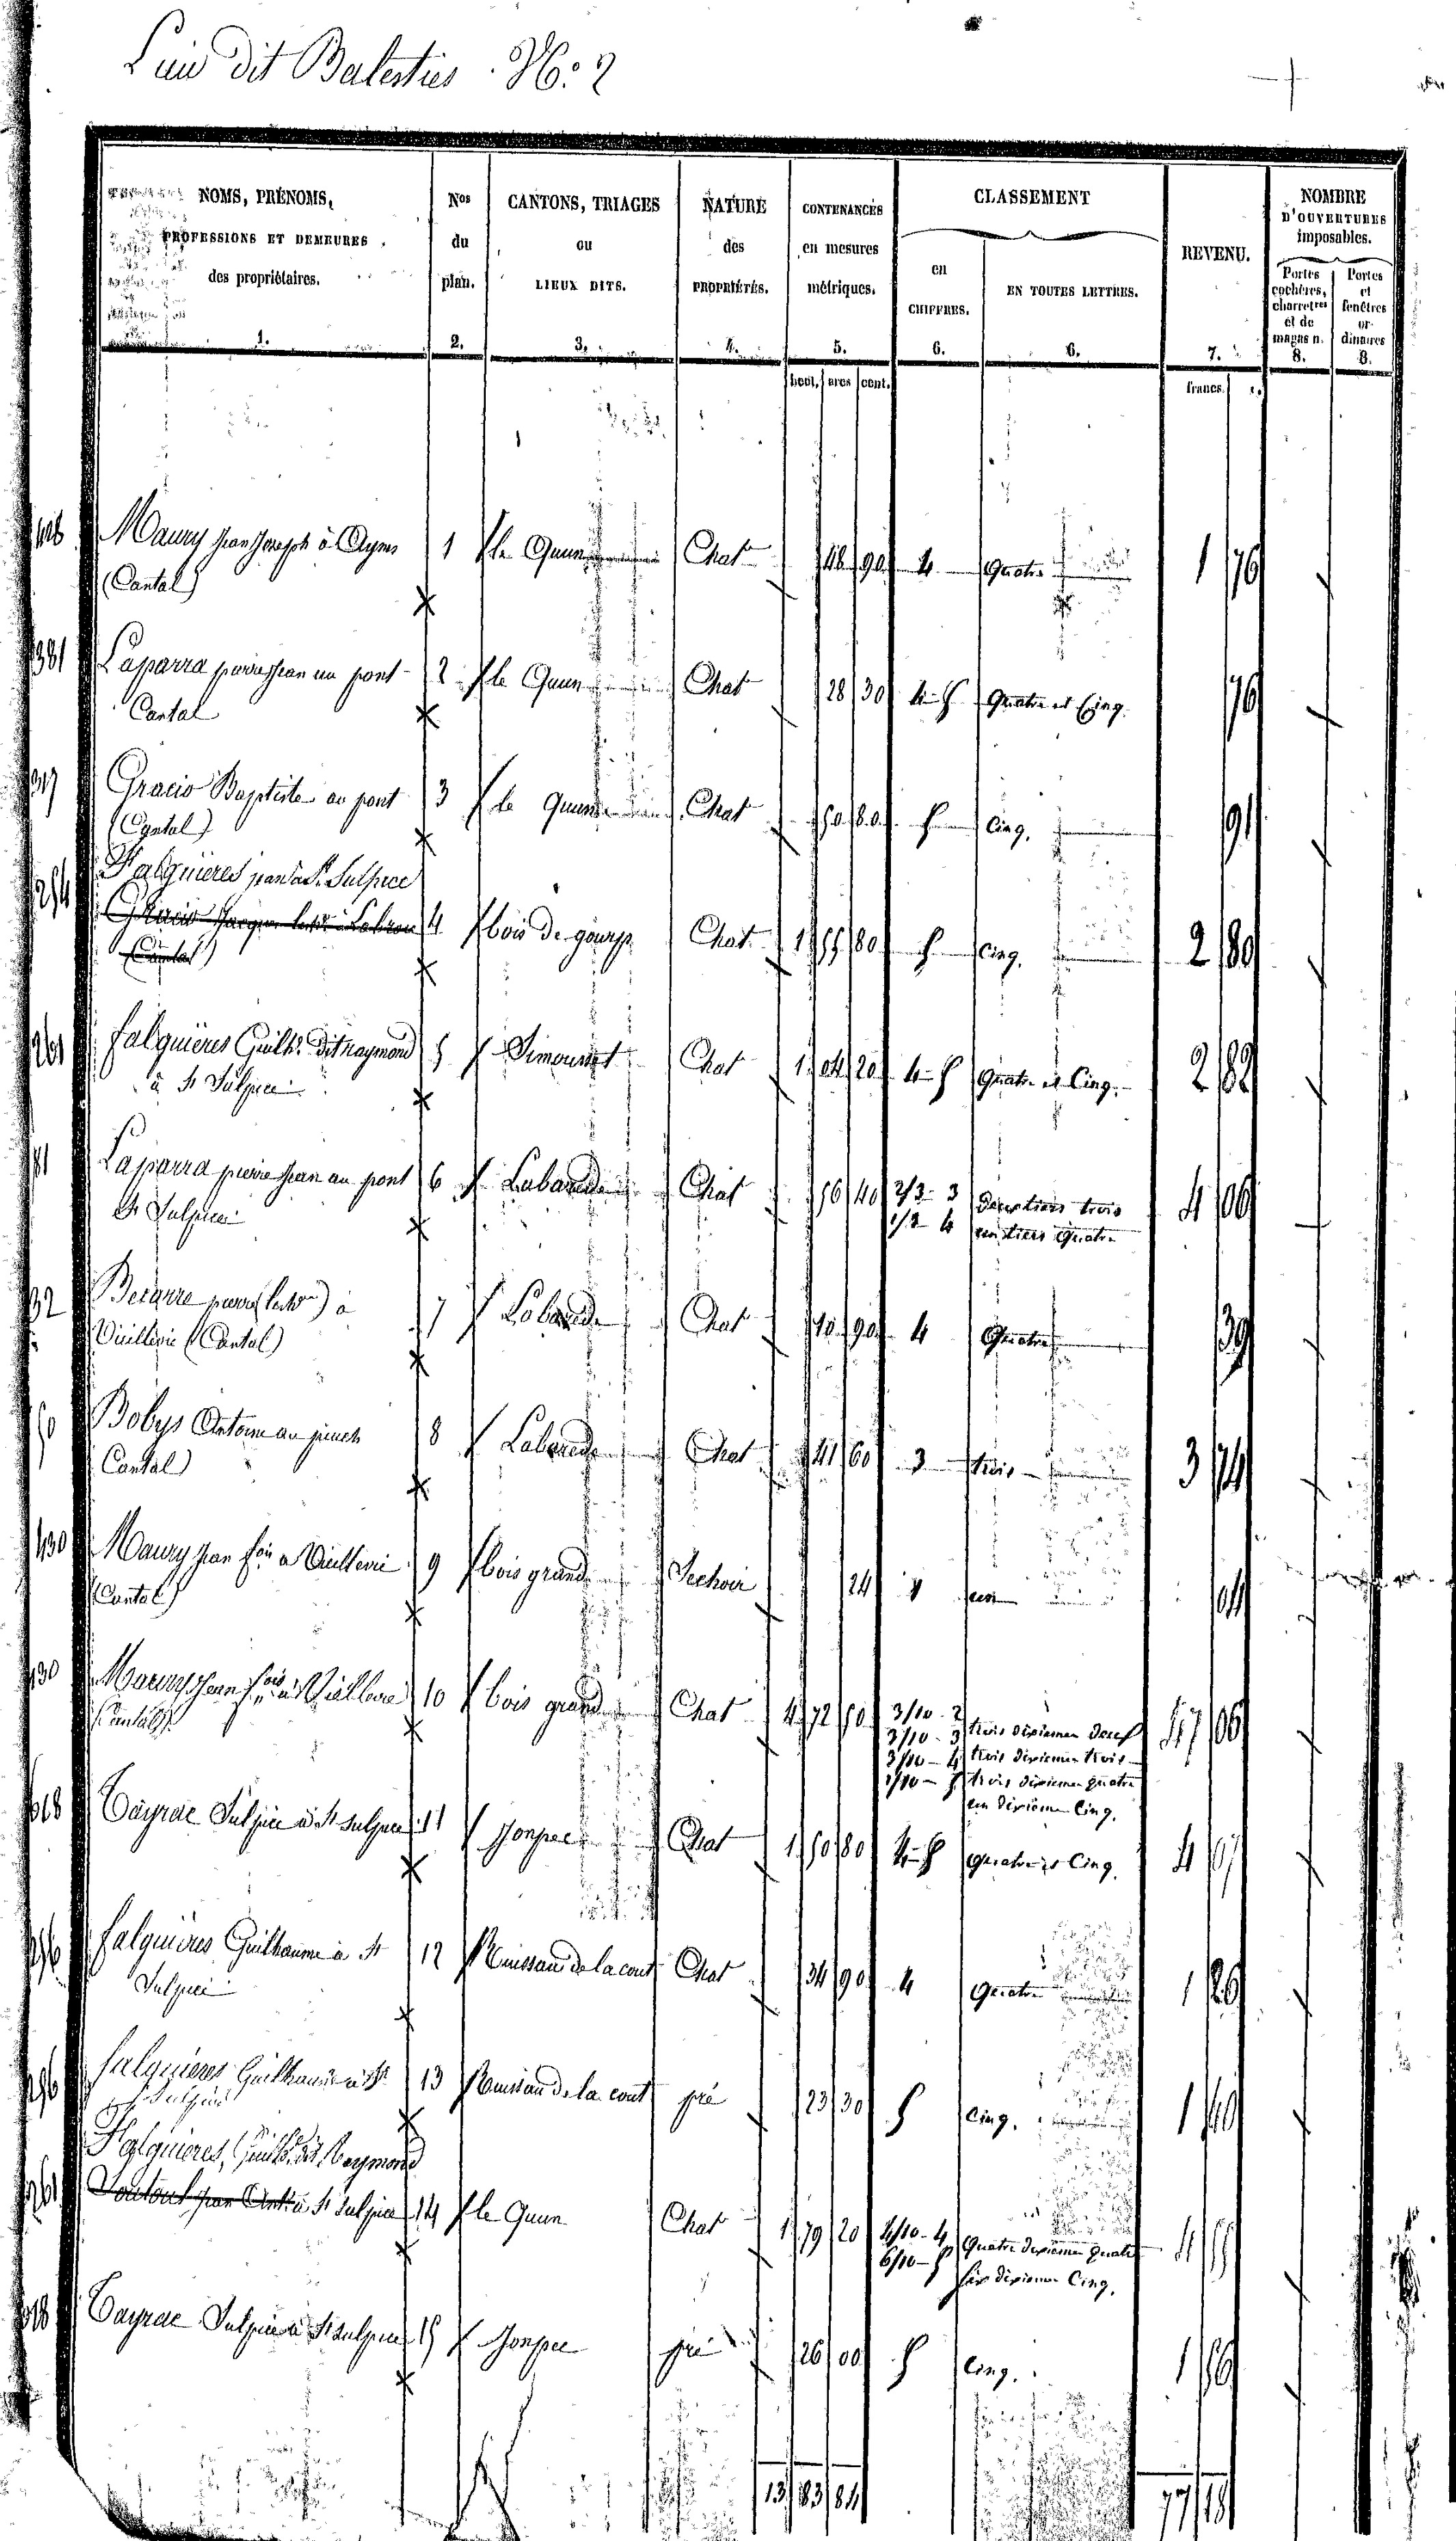 dit Balesties N°: 2
NOMS, PRÉNOMS,
PROFESSIONS ET DEMEURES
des propriétaires.
1.
Nos
du
plan.
2.
CANTONS, TRIAGES
ou
LIEUX DITS.
3.
NATURE
des
PROPRIÉTÉS.
4.
CONTENANCES
en mesures
métriques.
5.
CLASSEMENT
en
CHIFFRES.
6.
EN TOUTES LETTRES.
6.
REVENU.
7.
NOMBRE
D'OUVERTURES
imposables.
Portes
cochères,
charretres
et de
magas n.
8.
Portes
et
fenêtres
or-
dinaires
8.
hect. ares cent.
francs. c.
426 Maury Jean Joseph à 1 le Quun Chat 48 90 4 Quatre 1 76
(Cantal)
381 Laparra pierre Jean au pont 2 le Quun Chat 28 30 4-5 Quatre et Cinq. 76
Cantal
317 Gracio Baptiste au pont 3 le Quun Chat 50 80 5 Cinq. 91
(Cantal)
Falguières jean à St. Sulpice
254 4 bois de gourp Chat 1 55 80 5 Cinq. 2 80
(Cantal)
261 falguières Guilh. dit raymond 5 Simounet Chat 1 04 20 4-5 Quatre et Cinq. 2 82
à St Sulpice
81 Laparra pierre Jean au pont 6 Labarede Chat 56 40 2/3 3 Deux tiers trois 4 06
St Sulpice 1/3 4 un tiers Quatre
32 pierre à 7 Labarede Chat 10 90 4 Quatre 39
Vieillevie (Cantal)
50 Bobys Antoine au 8 Labarede Chat 41 60 3 trois 3 74
(Cantal)
430 Maury Jean fois à Vieillevie 9 bois grand Sechoir 24 1 un 04
(Cantal)
430 Maury Jean fois à Vieillevie 10 bois grand Chat 4 72 50 3/10 - 2 trois dixiemes Deux 47 06
(Cantal) 3/10 - 3 trois dixiemes trois
3/10 - 4 trois dixiemes quatre
1/10 - 5 un dixieme Cinq.
618 Cayrac Sulpice à St Sulpice 11 Jonpee Chat 1 50 80 4-5 quatre et Cinq. 4 07
256 falguières Guilhaume à St 12 Ruisseau de la cout Chat 34 90 4 Quatre 1 26
Sulpice
256 falguières Guilhaume à St 13 Ruisseau de la cout pré 23 30 5 Cinq. 1 40
Sulpice
Falguières, Guilh. dit Raymond
261 à St Sulpice 14 le Quun Chat 1 79 20 4/10 - 4 Quatre dixiemes quatre 4 55
6/10 - 5 six dixiemes Cinq.
618 Cayrac Sulpice à St Sulpice 15 Jonpee pré 26 00 5 Cinq. 1 56
13 83 84 77 18